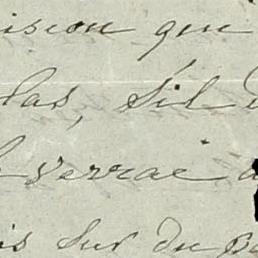 ision que
las, s'il
verrai
is sur du pa